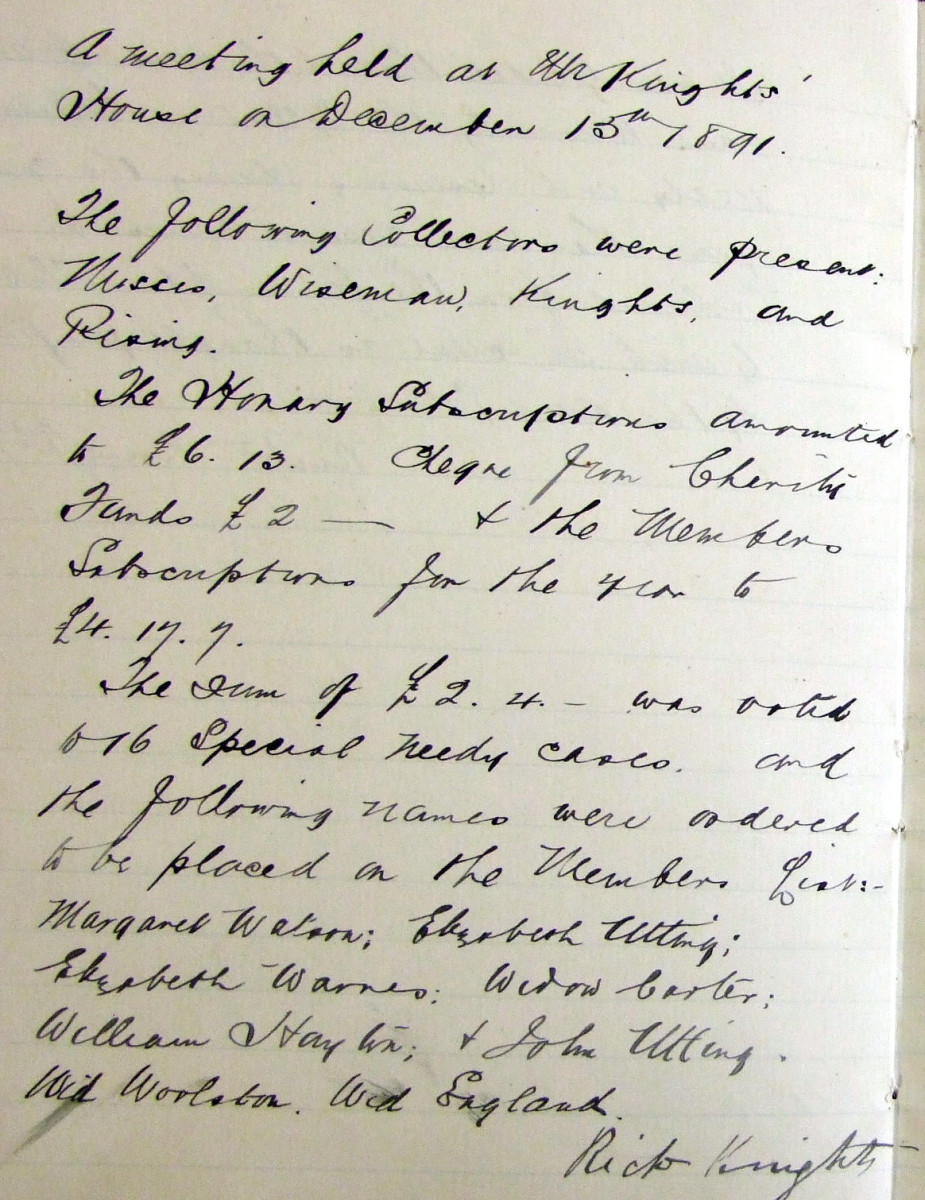 A meeting held at Mr Knights'
House on December 15th 1891.
The following Collectors were present:
Misses, Wiseman, Knights, and
Rising.
The Honary Subscriptions amounted
to £6. 13. Cheque from Charity
Funds £2 — & the Members
Subscriptions for the year to
£4. 17. 7.
The Sum of £2. 4. – was voted
to 16 Special needy cases. and
the following names were ordered
to be placed on the Members List:-
Margaret Watson; Elizabeth Utting;
Elizabeth Warnes; Widow Carter;
William Haylon; & John Utting.
Wid Woolston. Wid England.
Rich Knights